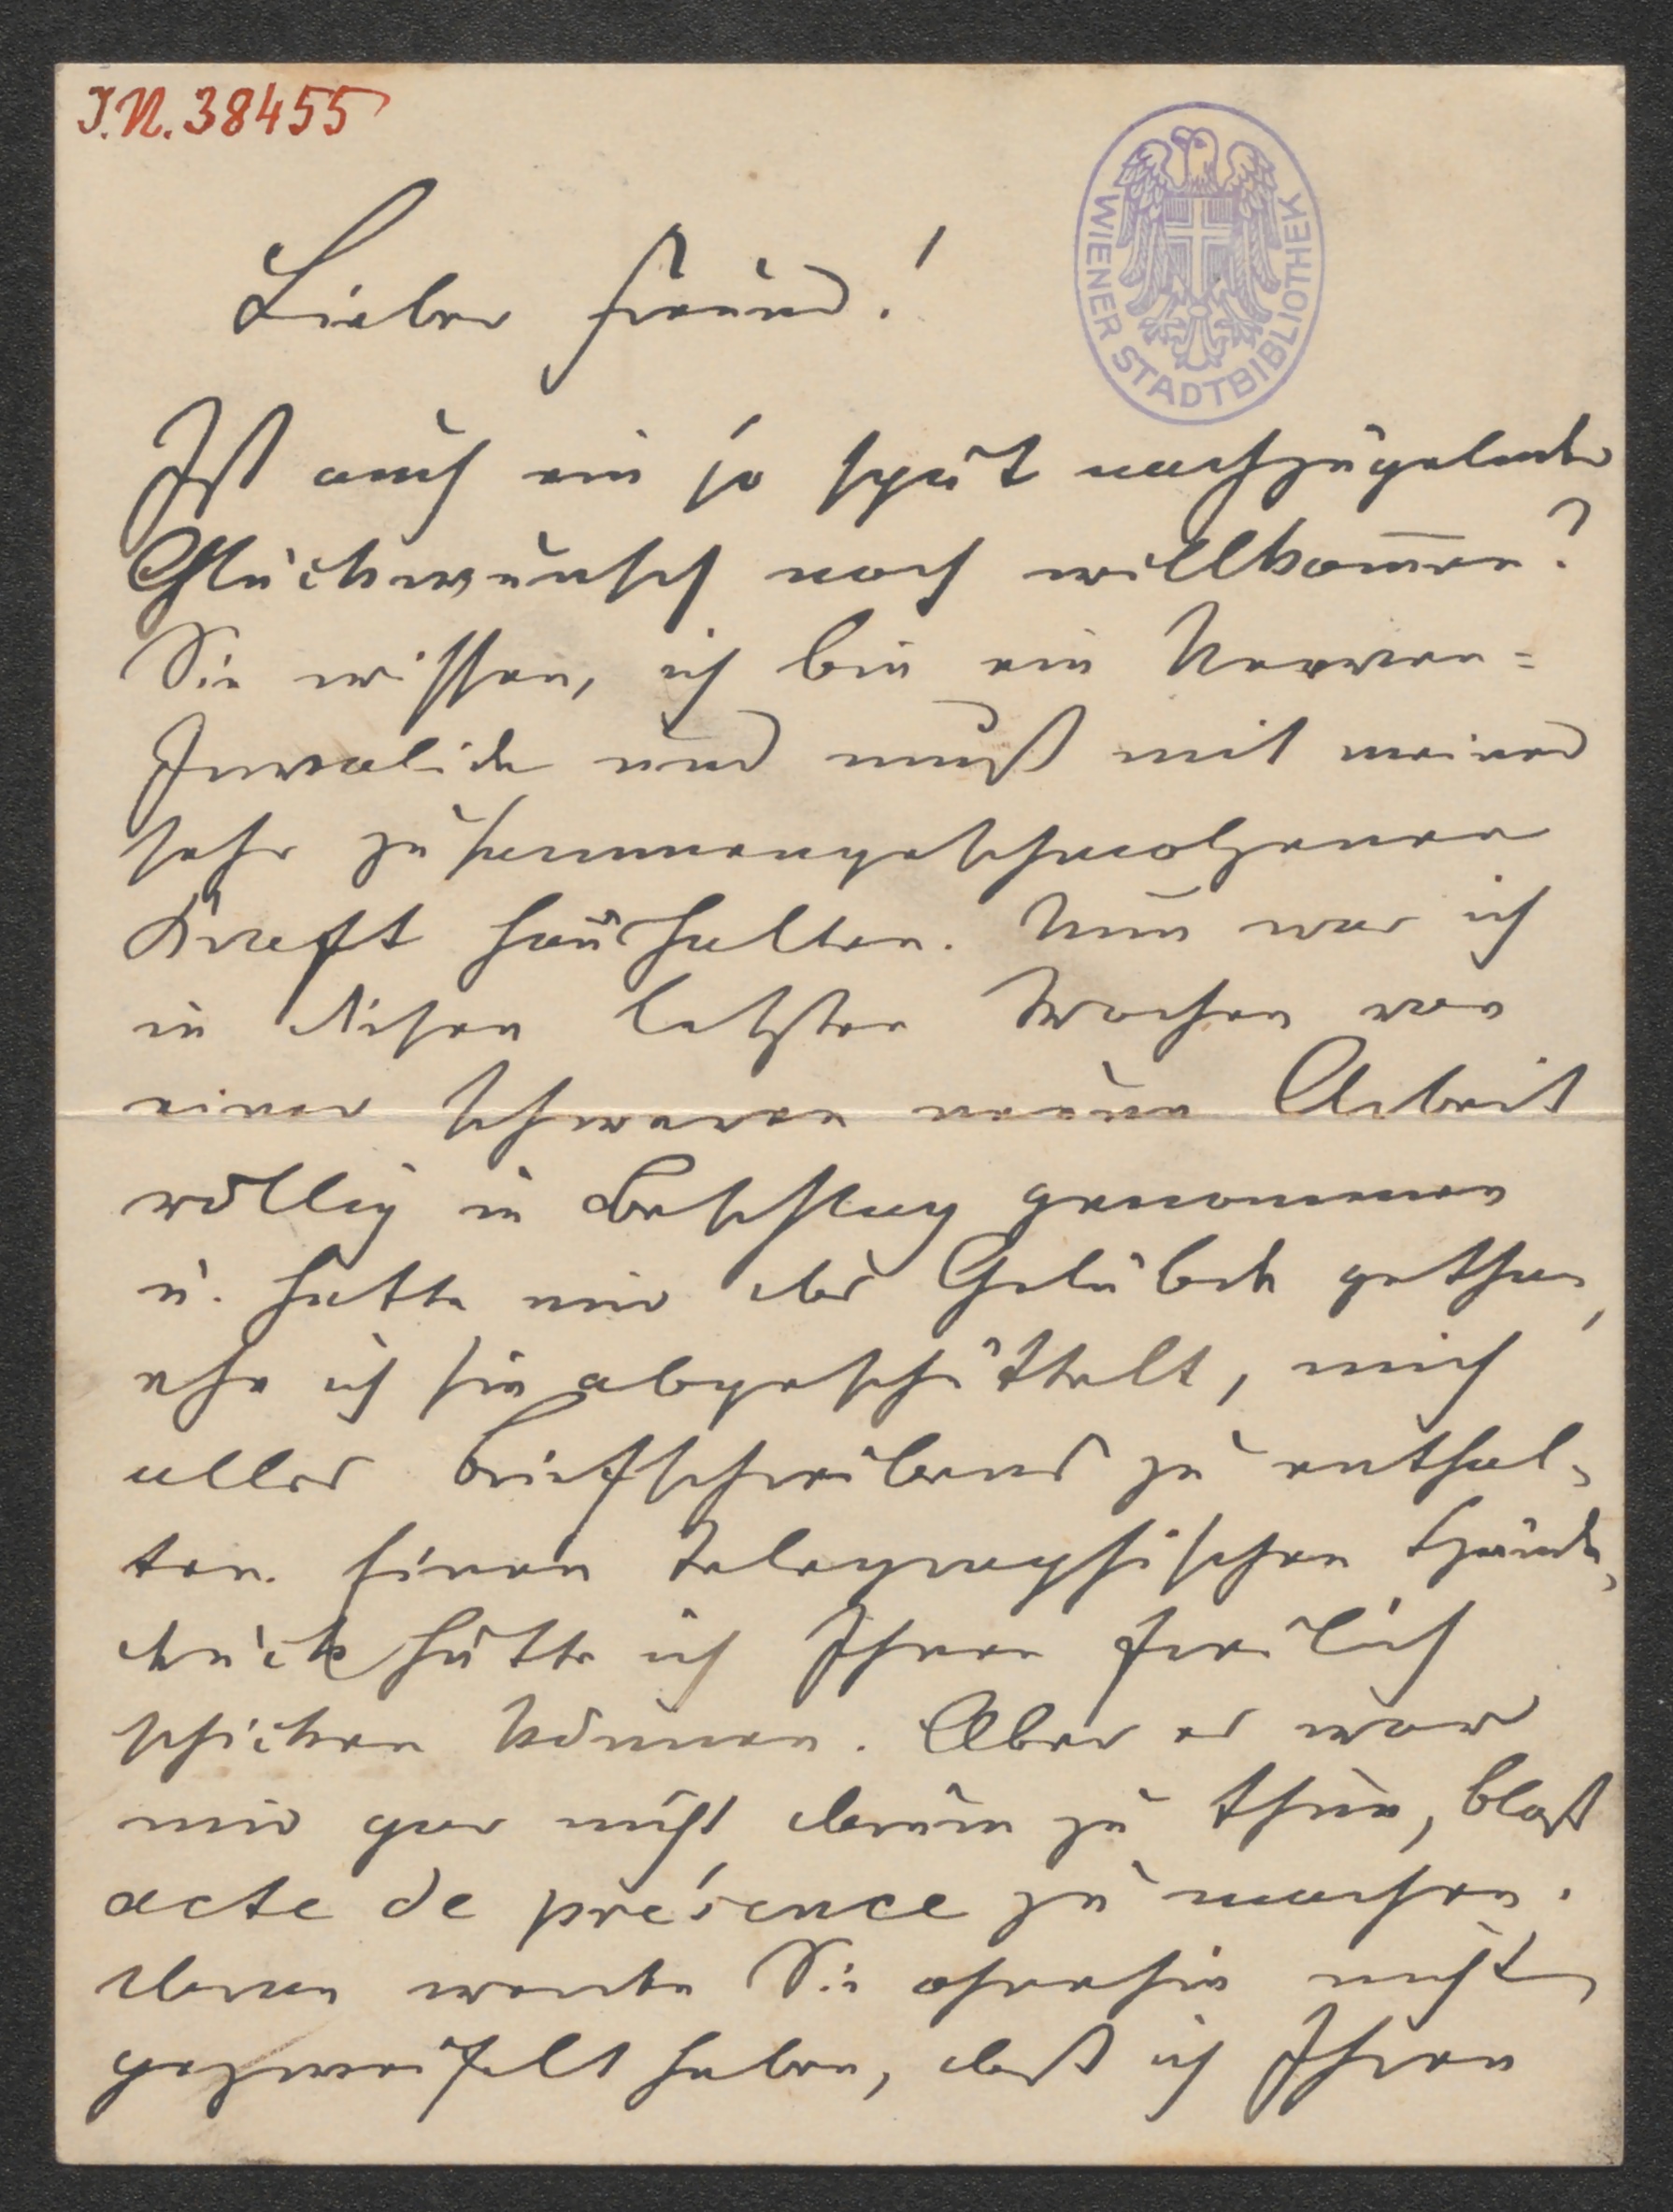 I.N. 38455
WIENER STADTBIBLIOTHEK
Lieber Freund!
Ist auch ein so spät nachzügelnder
Glückwunsch noch willkom̅en?
Sie wissen, ich bin ein Nerven=
Invalide und muß mit meiner
sehr zusammengeschmolzenen
Kraft haushalten. Nun war ich
in diesen letzten Wochen von
einer schweren neuen Arbeit
völlig in Beschlag genommen
u. hatte mir das Gelübde gethan,
ehe ich sie abgeschüttelt, mich
alles Briefschreibens zu enthal-
ten. Einen telegraphischen Hände-
druck hätte ich Ihnen freilich
schicken können. Aber es war
mir gar nicht darum zu thun, bloß
acte de présence zu machen.
Daran werden Sie ohnehin nicht
gezweifelt haben, daß ich Ihnen